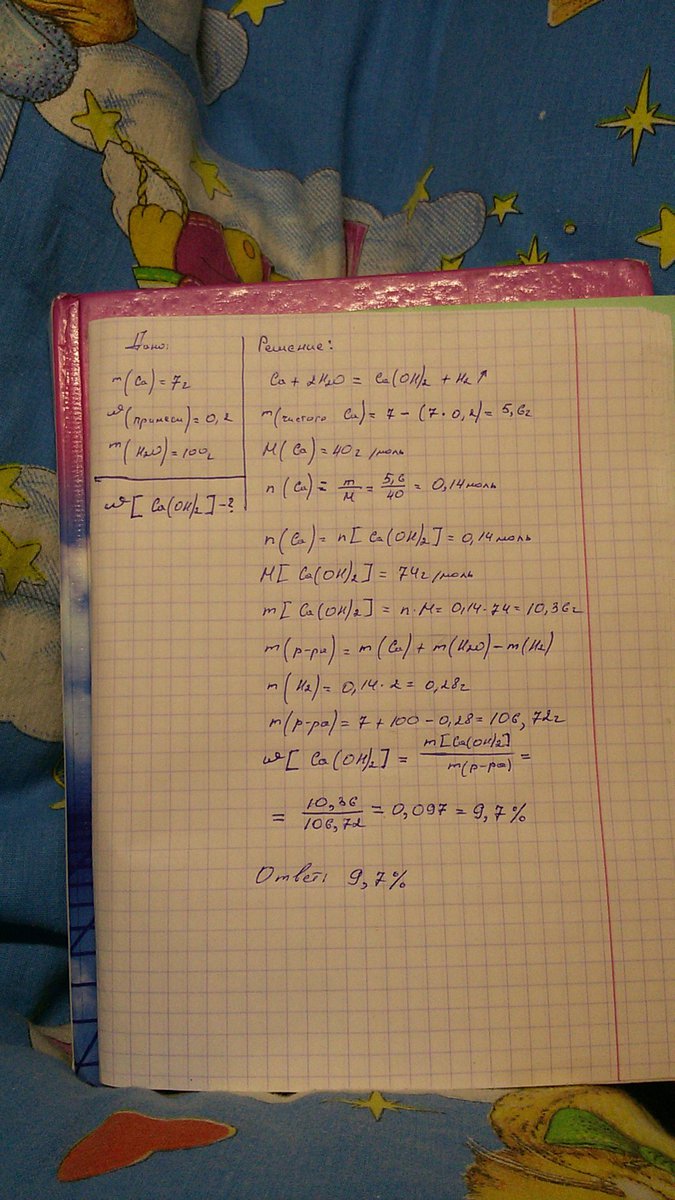 Дано:
m(Ca) = 7г
ω(примеси) = 0,2
m(H₂O) = 100г
ω[Ca(OH)₂] - ?
Решение:
Ca + 2H₂O = Ca(OH)₂ + H₂↑
m(чистого Ca) = 7 - (7 · 0,2) = 5,6г
M(Ca) = 40г/моль
n(Ca) = m/M = 5,6/40 = 0,14моль
n(Ca) = n[Ca(OH)₂] = 0,14моль
M[Ca(OH)₂] = 74г/моль
m[Ca(OH)₂] = n·M = 0,14·74 = 10,36г
m(р-ра) = m(Ca) + m(H₂O) - m(H₂)
m(H₂) = 0,14·2 = 0,28г
m(р-ра) = 7 + 100 - 0,28 = 106,72г
ω[Ca(OH)₂] = m[Ca(OH)₂]/m(р-ра) =
= 10,36/106,72 = 0,097 = 9,7%
Ответ: 9,7%